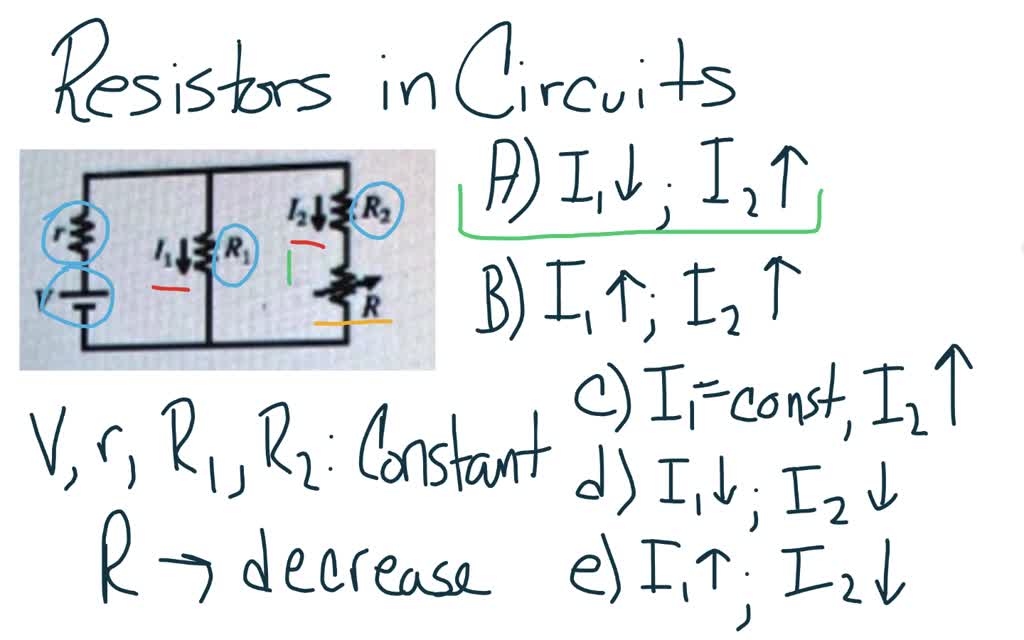 Resistors in Circuits
r
V
I₁
R₁
I₂
R₂
R
A) I₁↓; I₂↑
B) I₁↑; I₂↑
c) I₁=const, I₂↑
d) I₁↓; I₂↓
e) I₁↑; I₂↓
V, r, R₁, R₂: Constant
R → decrease